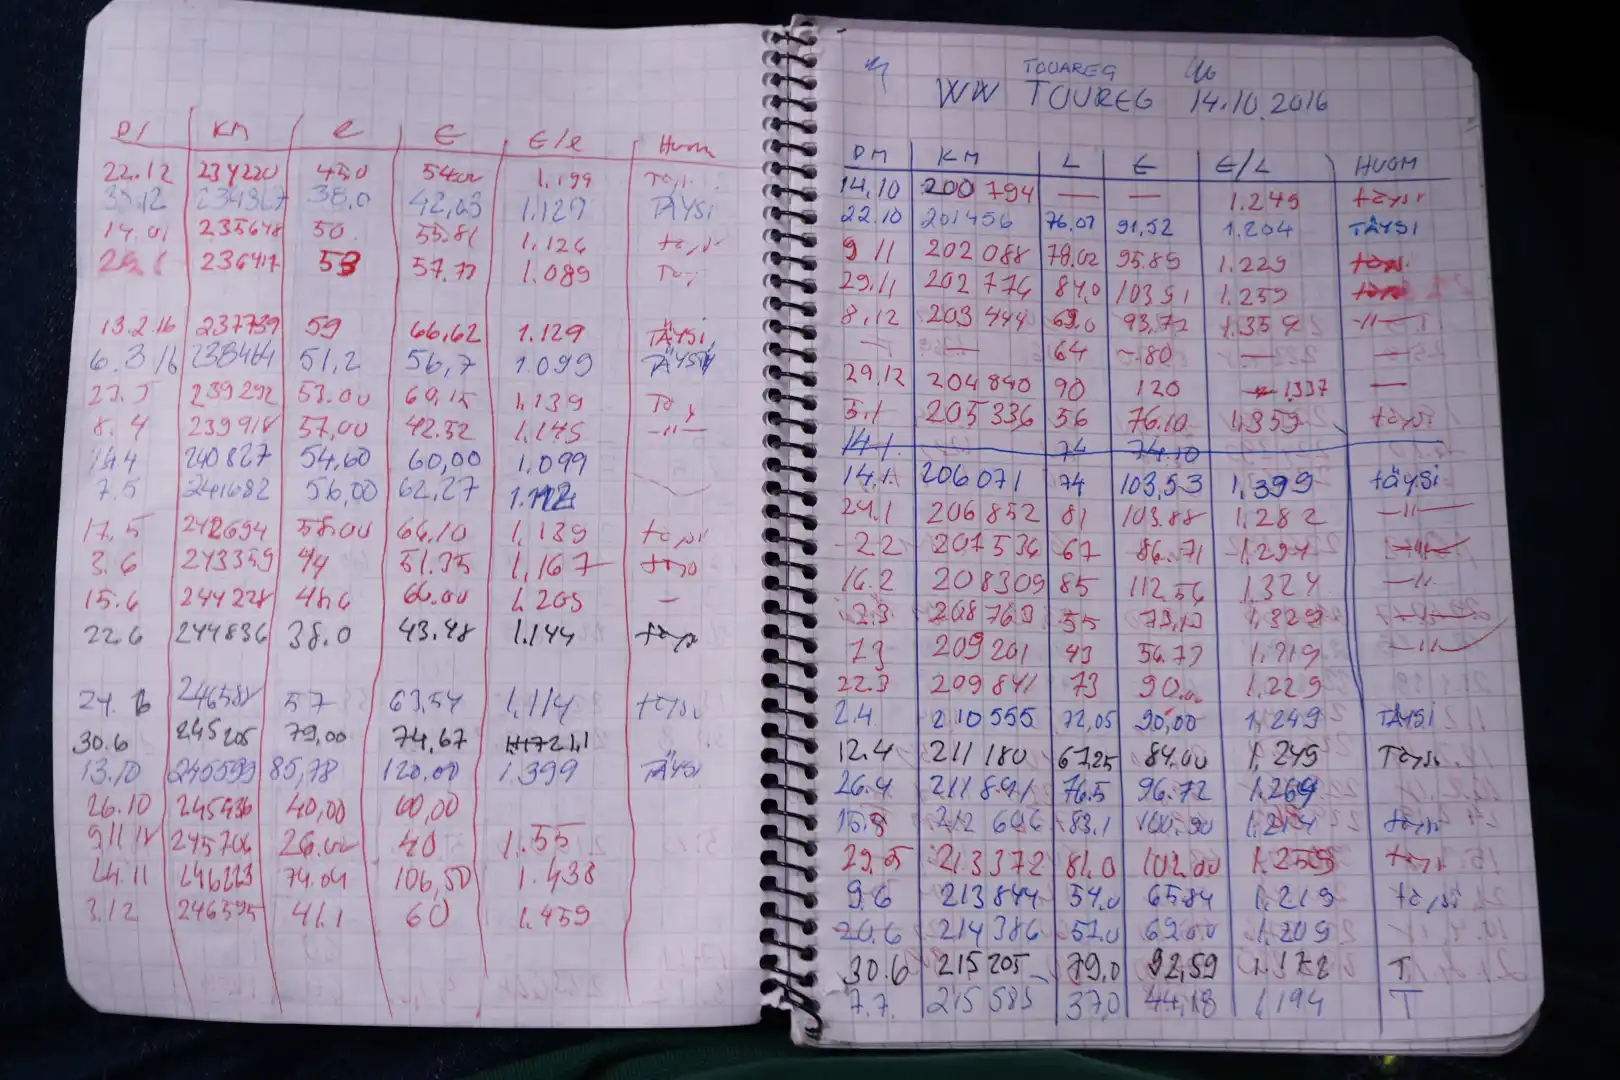 KM | e | € | €/e | Huom
22.12 234220 45,0 54,02 1.199
234867 38,0 42,63 1.129 TÄYSI
14.01 235648 50. 55.81 1,126 täysi
236417 53 57,77 1.089
13.2.16 237739 59 66,62 1.129 TÄYSI
6.3 16 238464 51,2 56,7 1.099 TÄYSI
239292 53.00 60,15 1,139
8.4 239918 57,00 42.52 1.145 -11-
14.4 240827 54,60 60,00 1,099
7.5 241682 56,00 62,27
17.5 242694 58.00 66,10 1,139 täysi
3.6 243359 44 51.35 1,167
15.6 244228 66.00 1.205 –
22.6 244836 38.0 43.48 1.144 täysi
24. 57 63,54 1,114 täysi
30.6 245205 79,00 74,67
13.10 245599 85,78 120,00 1.399 TÄYSI
26.10 245436 40,00 60,00
9.11 245706 26.02 40 1.55
24.11 246223 74.04 106,50 1.438
3.12 246595 41.1 60 1.459
TOUAREG
WW TOUREG 14.10.2016
PM KM L € €/L HUOM
14.10 200794 — — 1.249 täysi
22.10 201456 76,07 91,52 1.204 TÄYSI
9 11 202088 78,02 95.89 1.229 täysi
29.11 202776 84,0 103 91 1.259
8.12 203444 69.0 93,72 1.359 -11-
— — 64 ~80 — —
29.12 204840 90 120 1337 —
5.1 205336 56 76.10 1,359 täysi
14.1. 74 74.10
14.1. 206071 74 103,53 1,399 täysi
24.1 206852 81 103.88 1,282 -11-
2.2 207536 67 86.71 1.294
16.2 208309 85 112.56 1.324 -11
2.3 208763 55 73,10 1,329
7.3 209201 43 56.73 1.319 -11-
22.3 209841 73 90.. 1.229
2.4 210555 72,05 90,00 1,249 TÄYSI
12.4 211180 67.25 84.00 1,249 Täysi
26.4 211891 76.5 96.72 1.269
212606 83.1 100.90 1.214 täysi
29.5 213372 81.0 102.00 1.259 täysi
9.6 213844 54,0 65.84 1.219 täysi
20.6 214386 57.0 69.00 1.209
30.6 215205 79,0 92,59 1.172 T
7.7. 215585 37,0 44,18 1,194 T